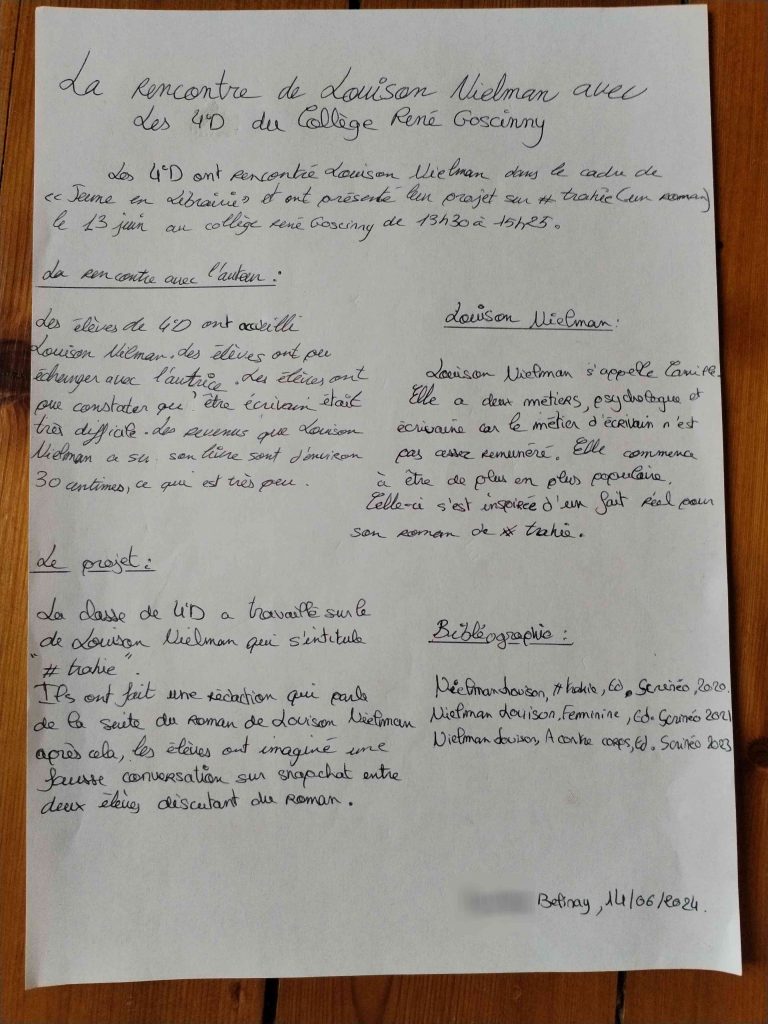 La rencontre de Louison Nielman avec
Les 4°D du Collège René Goscinny
Les 4°D ont rencontré Louison Nielman dans le cadre de
"Jeune en Librairie" et ont présenté leur projet sur # trahie (un roman)
le 13 juin au collège René Goscinny de 13h30 à 15h25.
La rencontre avec l'auteur :
Les élèves de 4°D ont accueilli
Louison Nielman. Les élèves ont pu
échanger avec l'autrice. Les élèves ont
pue constater qu'être écrivain était
très difficile. Les revenus que Louison
Nielman a sur son livre sont d'environ
30 centimes, ce qui est très peu.
Le projet :
La classe de 4°D a travaillé sur le
de Louison Nielman qui s'intitule
"# trahie".
Ils ont fait une rédaction qui parle
de la suite du roman de Louison Nielman
après cela, les élèves ont imaginé une
fausse conversation sur snapchat entre
deux élèves discutant du roman.
Louison Nielman :
Louison Nielman s'appelle Camille.
Elle a deux métiers, psychologue et
écrivaine car le métier d'écrivain n'est
pas assez remunéré. Elle commence
à être de plus en plus populaire.
Celle-ci s'est inspirée d'un fait réel pour
son roman de # trahie.
Bibliographie :
Nielman Louison, # trahie, Ed. Scrinéo, 2020.
Nielman Louison, Feminine, Ed. Scrinéo 2021
Nielman Louison, A contre corps, Ed. Scrinéo 2023
Befinay, 14/06/2024.